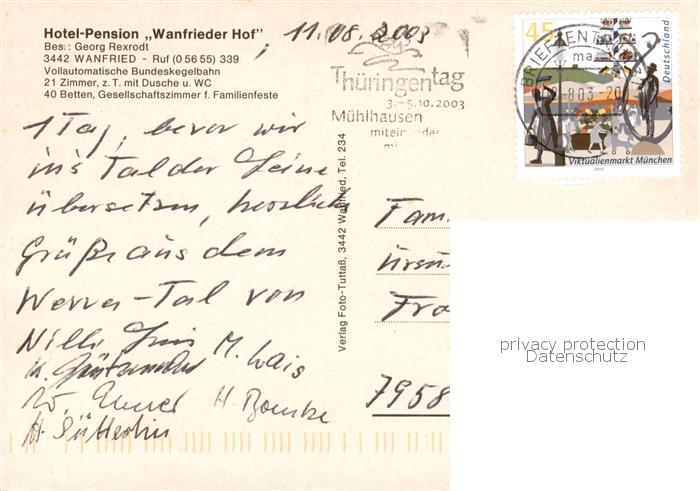 Hotel-Pension „Wanfrieder Hof"
Bes.: Georg Rexrodt
3442 WANFRIED - Ruf (0 56 55) 339
Vollautomatische Bundeskegelbahn
21 Zimmer, z. T. mit Dusche u. WC
40 Betten, Gesellschaftszimmer f. Familienfeste
11.08.2003
Thüringentag
3.-5.10.2003
Mühlhausen
miteinander
45
Deutschland
BRIEFZENTR
Viktualienmarkt München
2003
1 Tag, bevor wir
ins Tal der Leine
übersetzen, herzliche
Grüße aus dem
Werra-Tal von
Willi
M. Wais
Verlag Foto-Tuttaß, 3442 Wanfried, Tel. 234
Fam.
Fra
7958
privacy protection
Datenschutz